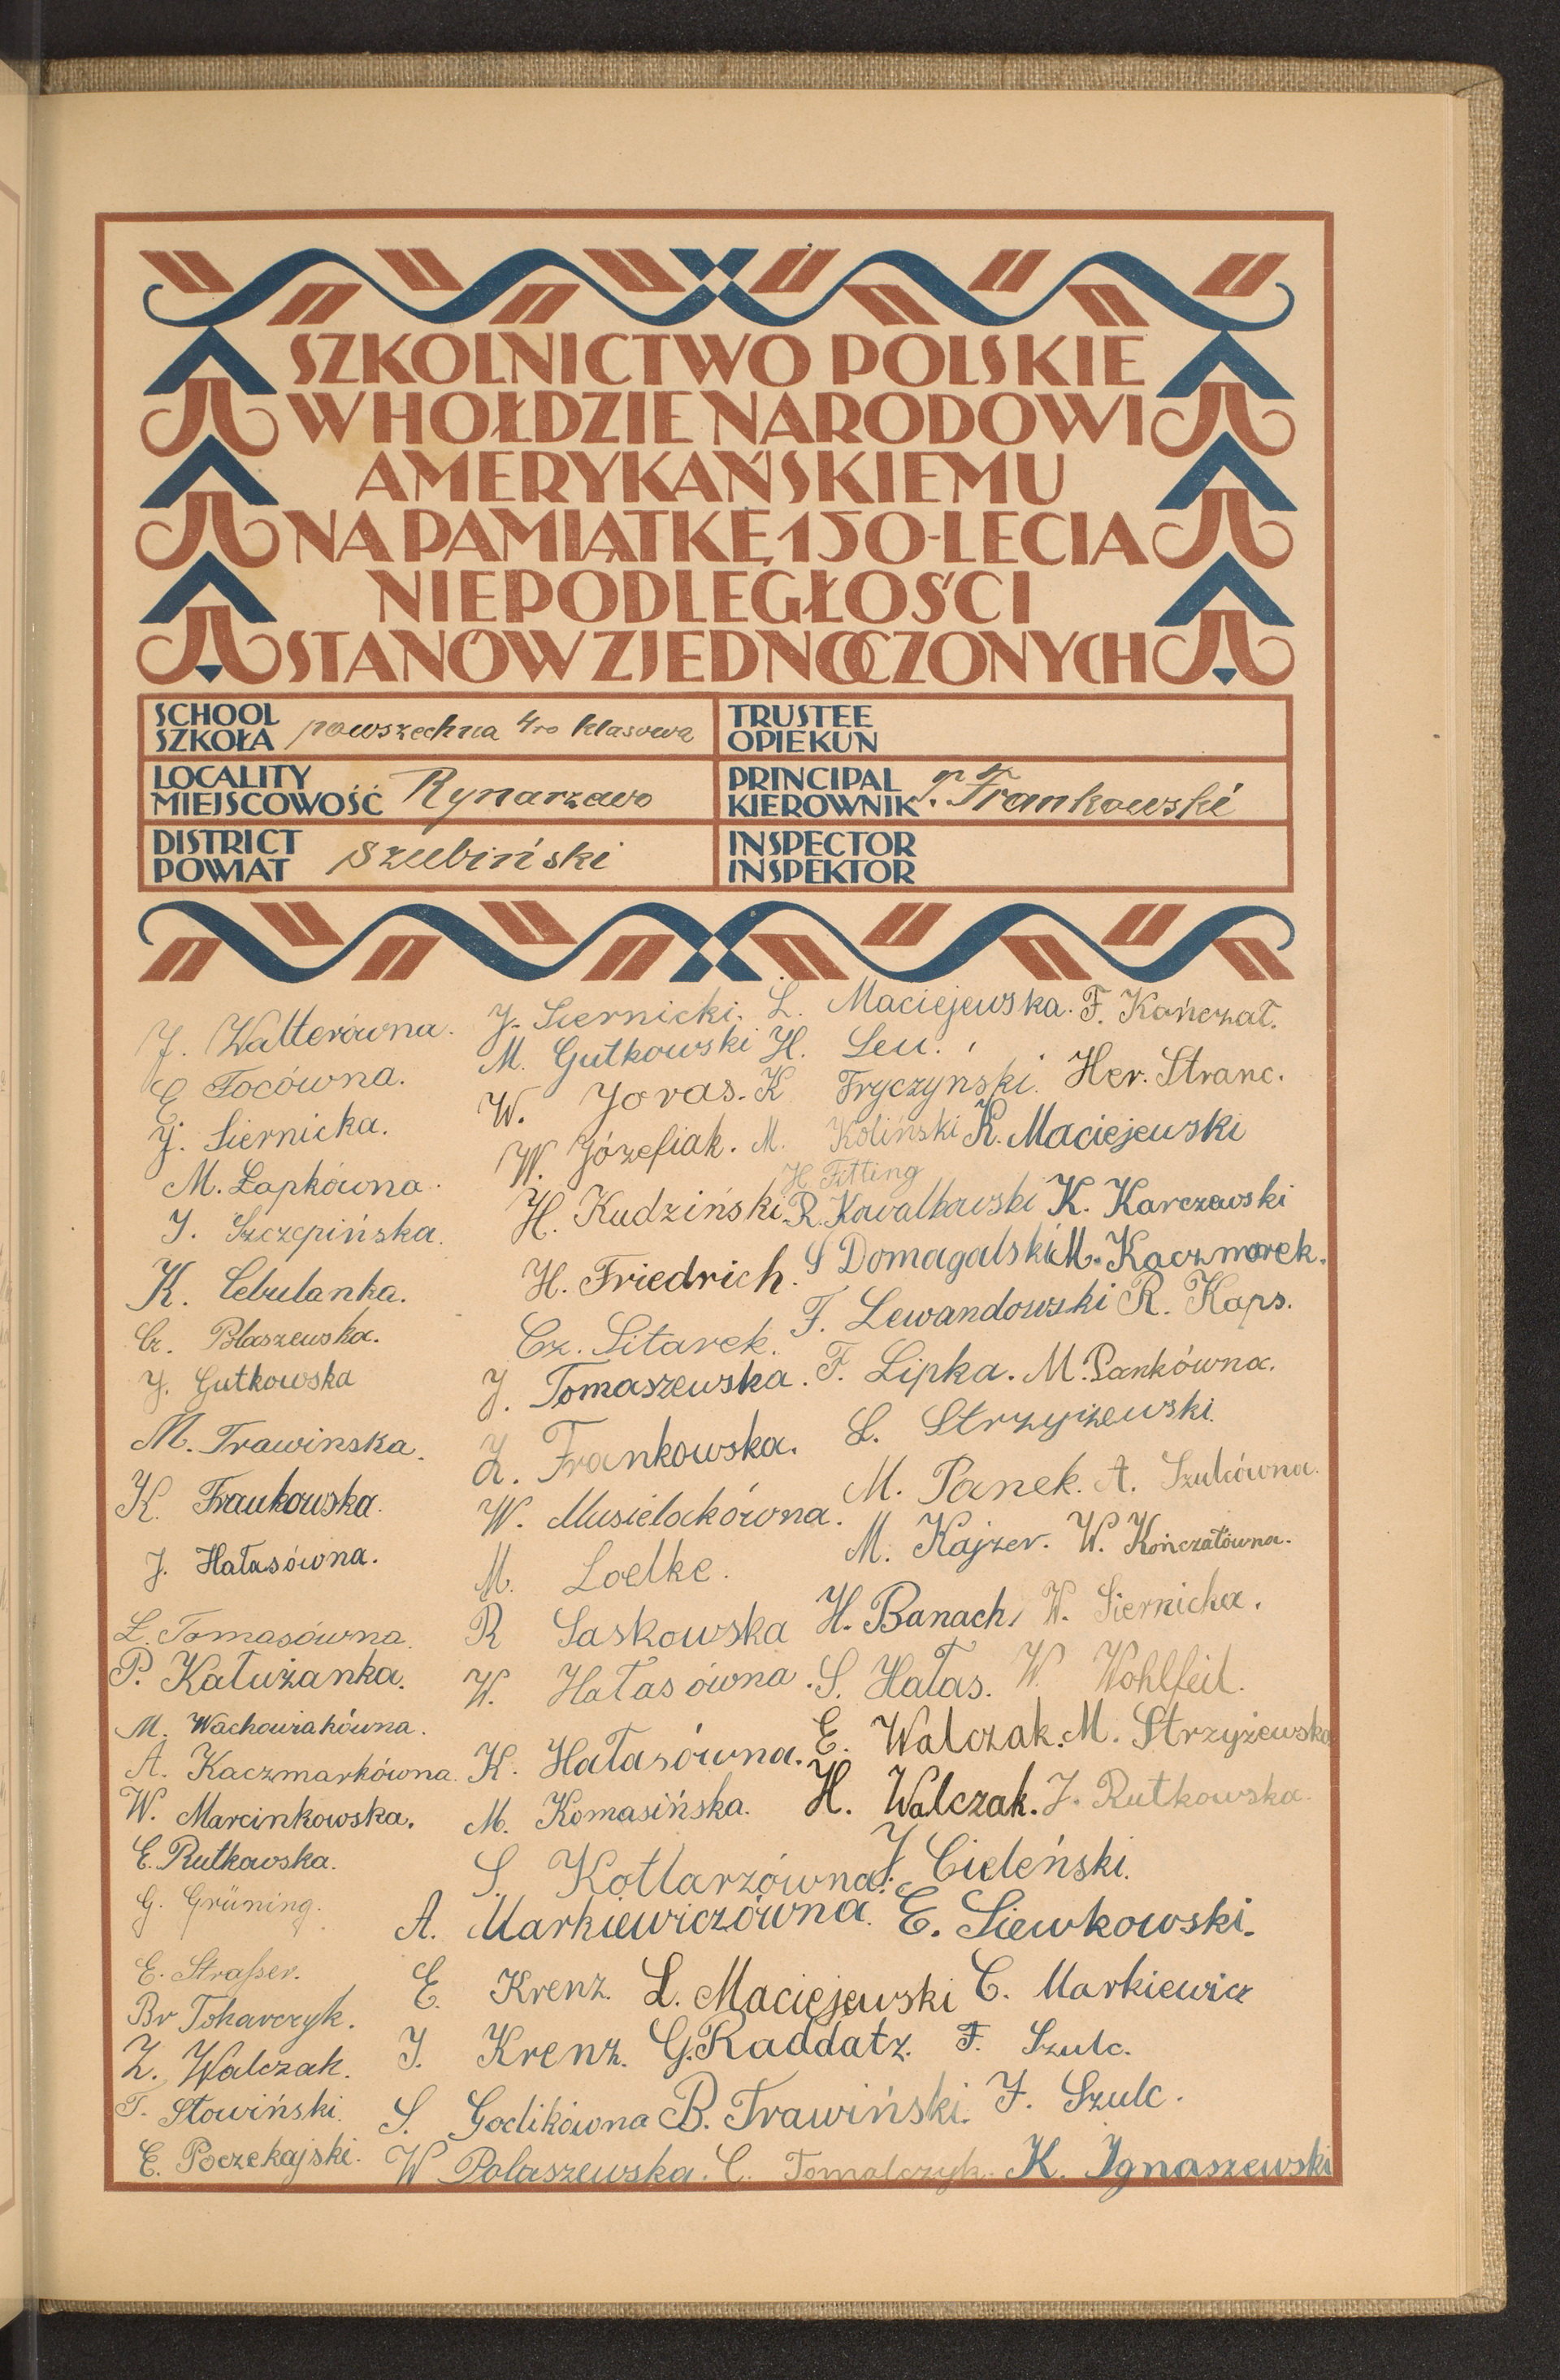 SZKOLNICTWO POLSKIE
W HOŁDZIE NARODOWI
AMERYKAŃSKIEMU
NA PAMIĄTKĘ 150-LECIA
NIEPODLEGŁOŚCI
STANÓW ZJEDNOCZONYCH
SCHOOL
SZKOŁA powszechna 4ro klasowa
TRUSTEE
OPIEKUN
LOCALITY
MIEJSCOWOŚĆ Rynarzewo
PRINCIPAL
KIEROWNIK T. Frankowski
DISTRICT
POWIAT Szubiński
INSPECTOR
INSPEKTOR
J. Walterówna.
E Tocówna.
J. Siernicka.
M. Łapkówna.
J. Szczepińska.
K. Cebulanka.
Cz. Błaszewska.
J. Gutkowska
M. Trawinska.
K. Frankowska.
J. Hałasówna.
L. Tomasówna.
P. Kałużanka.
M. Wachowiakówna.
A. Kaczmarkówna.
W. Marcinkowska.
E. Rutkowska.
G. Grüning.
E. Straßer.
Br Tokarczyk.
Z. Walczak.
T. Słowiński.
E. Poczekajski.
J. Siernicki.
M. Gutkowski
W. Joras.
W. Józefiak.
H. Kudziński.
H. Friedrich.
Cz. Sitarek.
J. Tomaszewska.
Z. Frankowska.
W. Musielakówna.
M. Loelke.
R Saskowska
W. Hałasówna.
K. Hałasówna.
M. Komasińska.
S. Kotlarzówna.
A. Markiewiczówna.
E. Krenz.
J. Krenz.
S. Godikówna
W Polaszewska.
L. Maciejewska.
H. Leu.
K Fryczynski.
M. Koliński
H. Fitting
R. Kowalkowski
S Domagalski
F. Lewandowski
F. Lipka.
L. Strzyżewski.
M. Panek.
M. Kajzer.
H. Banach,
S. Hałas.
E. Walczak.
H. Walczak.
J. Cieleński.
E. Siewkowski.
L. Maciejewski
G. Raddatz.
B. Trawiński.
C. Tomalczyk.
F. Kończał.
Her. Stranc.
R. Maciejewski
K. Karczewski
M. Kaczmarek.
R. Kaps.
M. Pankówna.
A. Szulcówna.
W. Kończałówna.
W. Siernicka.
W. Wohlfeil.
M. Strzyżewska
J. Rutkowska.
C. Markiewicz
F. Szulc.
J. Szulc.
K. Ignaszewski